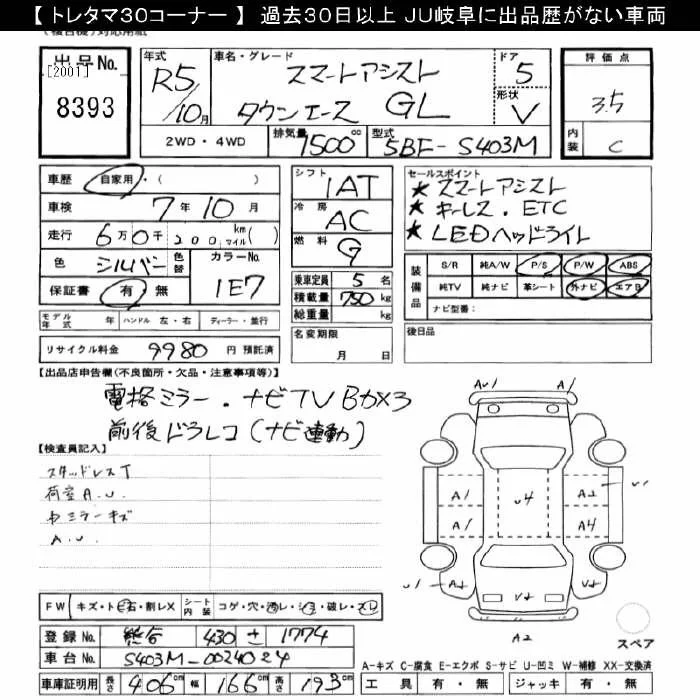 【トレタマ30コーナー】 過去30日以上 JU岐阜に出品歴がない車両
出品No.
[2001]
8393
年式
R5/10月
車名・グレード
スマートアシスト
タウンエース GL
ドア
5
形状
V
評価点
3.5
内装
C
2WD・4WD
排気量
1500cc
型式
5BF-S403M
車歴 自家用・( )
車検 7年10月
走行 6万0千200 km マイル( )
色 シルバー 色替
カラーNo.
1E7
保証書 有 無
シフト
IAT
冷房
AC
燃料
G
乗車定員 5名
積載量 750 kg
総重量 kg
セールスポイント
★ スマートアシスト
★ キーレス.ETC
★ LEDヘッドライト
装備品
S/R 純A/W P/S P/W ABS
純TV 純ナビ 革シート 外ナビ エアB
ナビ型番( )
モデル年式 年 ハンドル 左・右 ディーラー・並行
リサイクル料金 9980 円 預託済
名変期限
月 日
後日品
【出品店申告欄(不良箇所・欠品・注意事項等)】
電格ミラー.ナビTVBカメラ
前後ドラレコ(ナビ連動)
【検査員記入】
スタッドレスT
荷室A.U.
ミラーキズ
A.U.
AU1
A1
A1
U4
A2
U1
A1
A4
U1
A2
U2
U2
A2
スペア
FW キズ・ト石・割レX
シート内装 コゲ・穴・汚レ・シミ・破レ・スレ
登録No. 熊谷 430 さ 1774
車台No. S403M-0024024
車庫証明用 長さ 406 cm 幅 166 cm 高さ 193 cm
A-キズ C-腐食 E-エクボ S-サビ U-凹ミ W-補修 XX-交換済
工具 有・無 ジャッキ 有・無